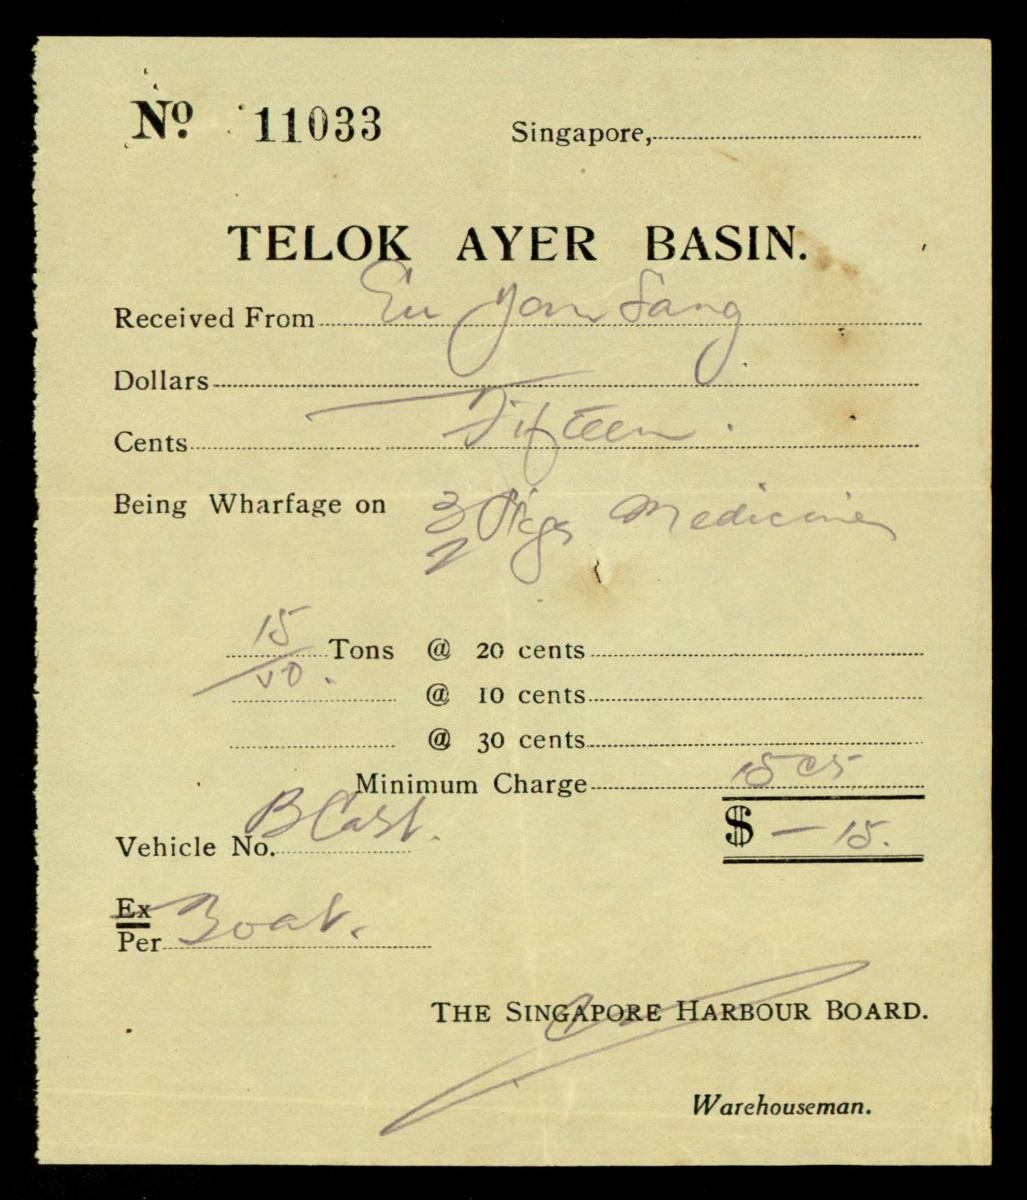 No. 11033 Singapore,
TELOK AYER BASIN.
Received From Eu Yan Sang
Dollars
Cents Fifteen.
Being Wharfage on 3 Pkgs Medicines
15/50. Tons @ 20 cents
@ 10 cents
@ 30 cents
Minimum Charge 15 cs
$ — 15.
Vehicle No. B Cart.
Ex Boat.
Per
THE SINGAPORE HARBOUR BOARD.
Warehouseman.